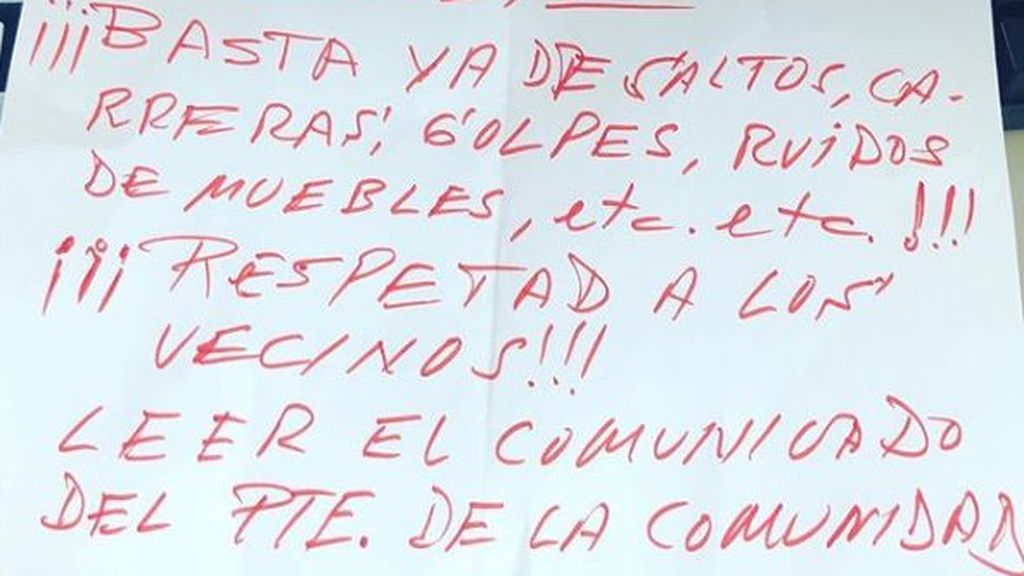 ¡¡¡BASTA YA DE SALTOS, CA-
RRERAS, GOLPES, RUIDOS
DE MUEBLES, etc. etc. !!!
¡¡¡ RESPETAD A LOS
VECINOS!!!
LEER EL COMUNICADO
DEL PTE. DE LA COMUNIDAD